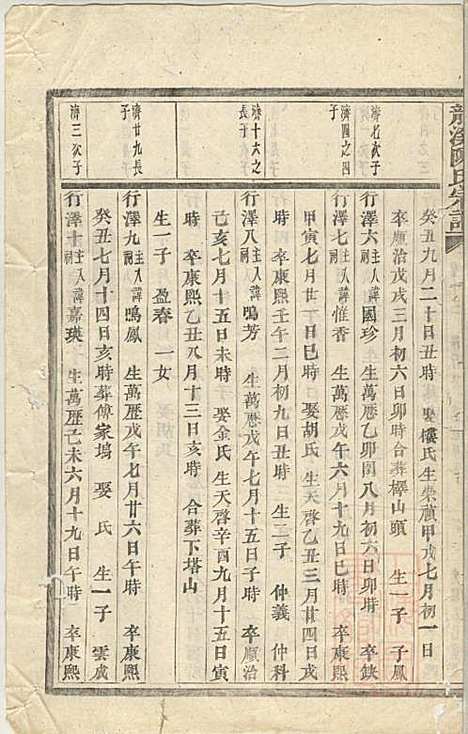 龍溪陳氏宗譜
癸丑九月二十日丑時 娶樓氏生崇禎甲戌七月初一日
卒順治戊戌三月初六日卯時合葬樨山頭 生一子 子鳳
濟名次子
行澤六 主人祠 諱國珍 生萬歷乙卯閏八月初六日卯時 卒缺
濟四之四子
行澤七 主人祠 諱惟香 生萬歷戊午六月十九日巳時 卒康熙
甲寅七月廿一日巳時 娶胡氏 生天啓乙丑三月廿四日戌
時 卒康熙壬午二月初九日丑時 生二子 仲義 仲科
濟十六之長子
行澤八 主人祠 諱鳴芳 生萬歷戊午七月十五日子時 卒順治
己亥七月十五日未時 娶金氏 生天啓辛酉九月十五日寅
時 卒康熙乙丑八月十三日亥時 合葬下塔山
生一子 盈春 一女
濟廿九長子
行澤九 主人祠 諱鳴鳳 生萬歷戊午七月廿六日午時 卒康熙
癸丑七月十四日亥時葬傅家塢 娶 氏 生一子 雲成
濟三次子
行澤十 主人祠 諱嘉瑛 生萬歷己未六月十九日午時 卒康熙